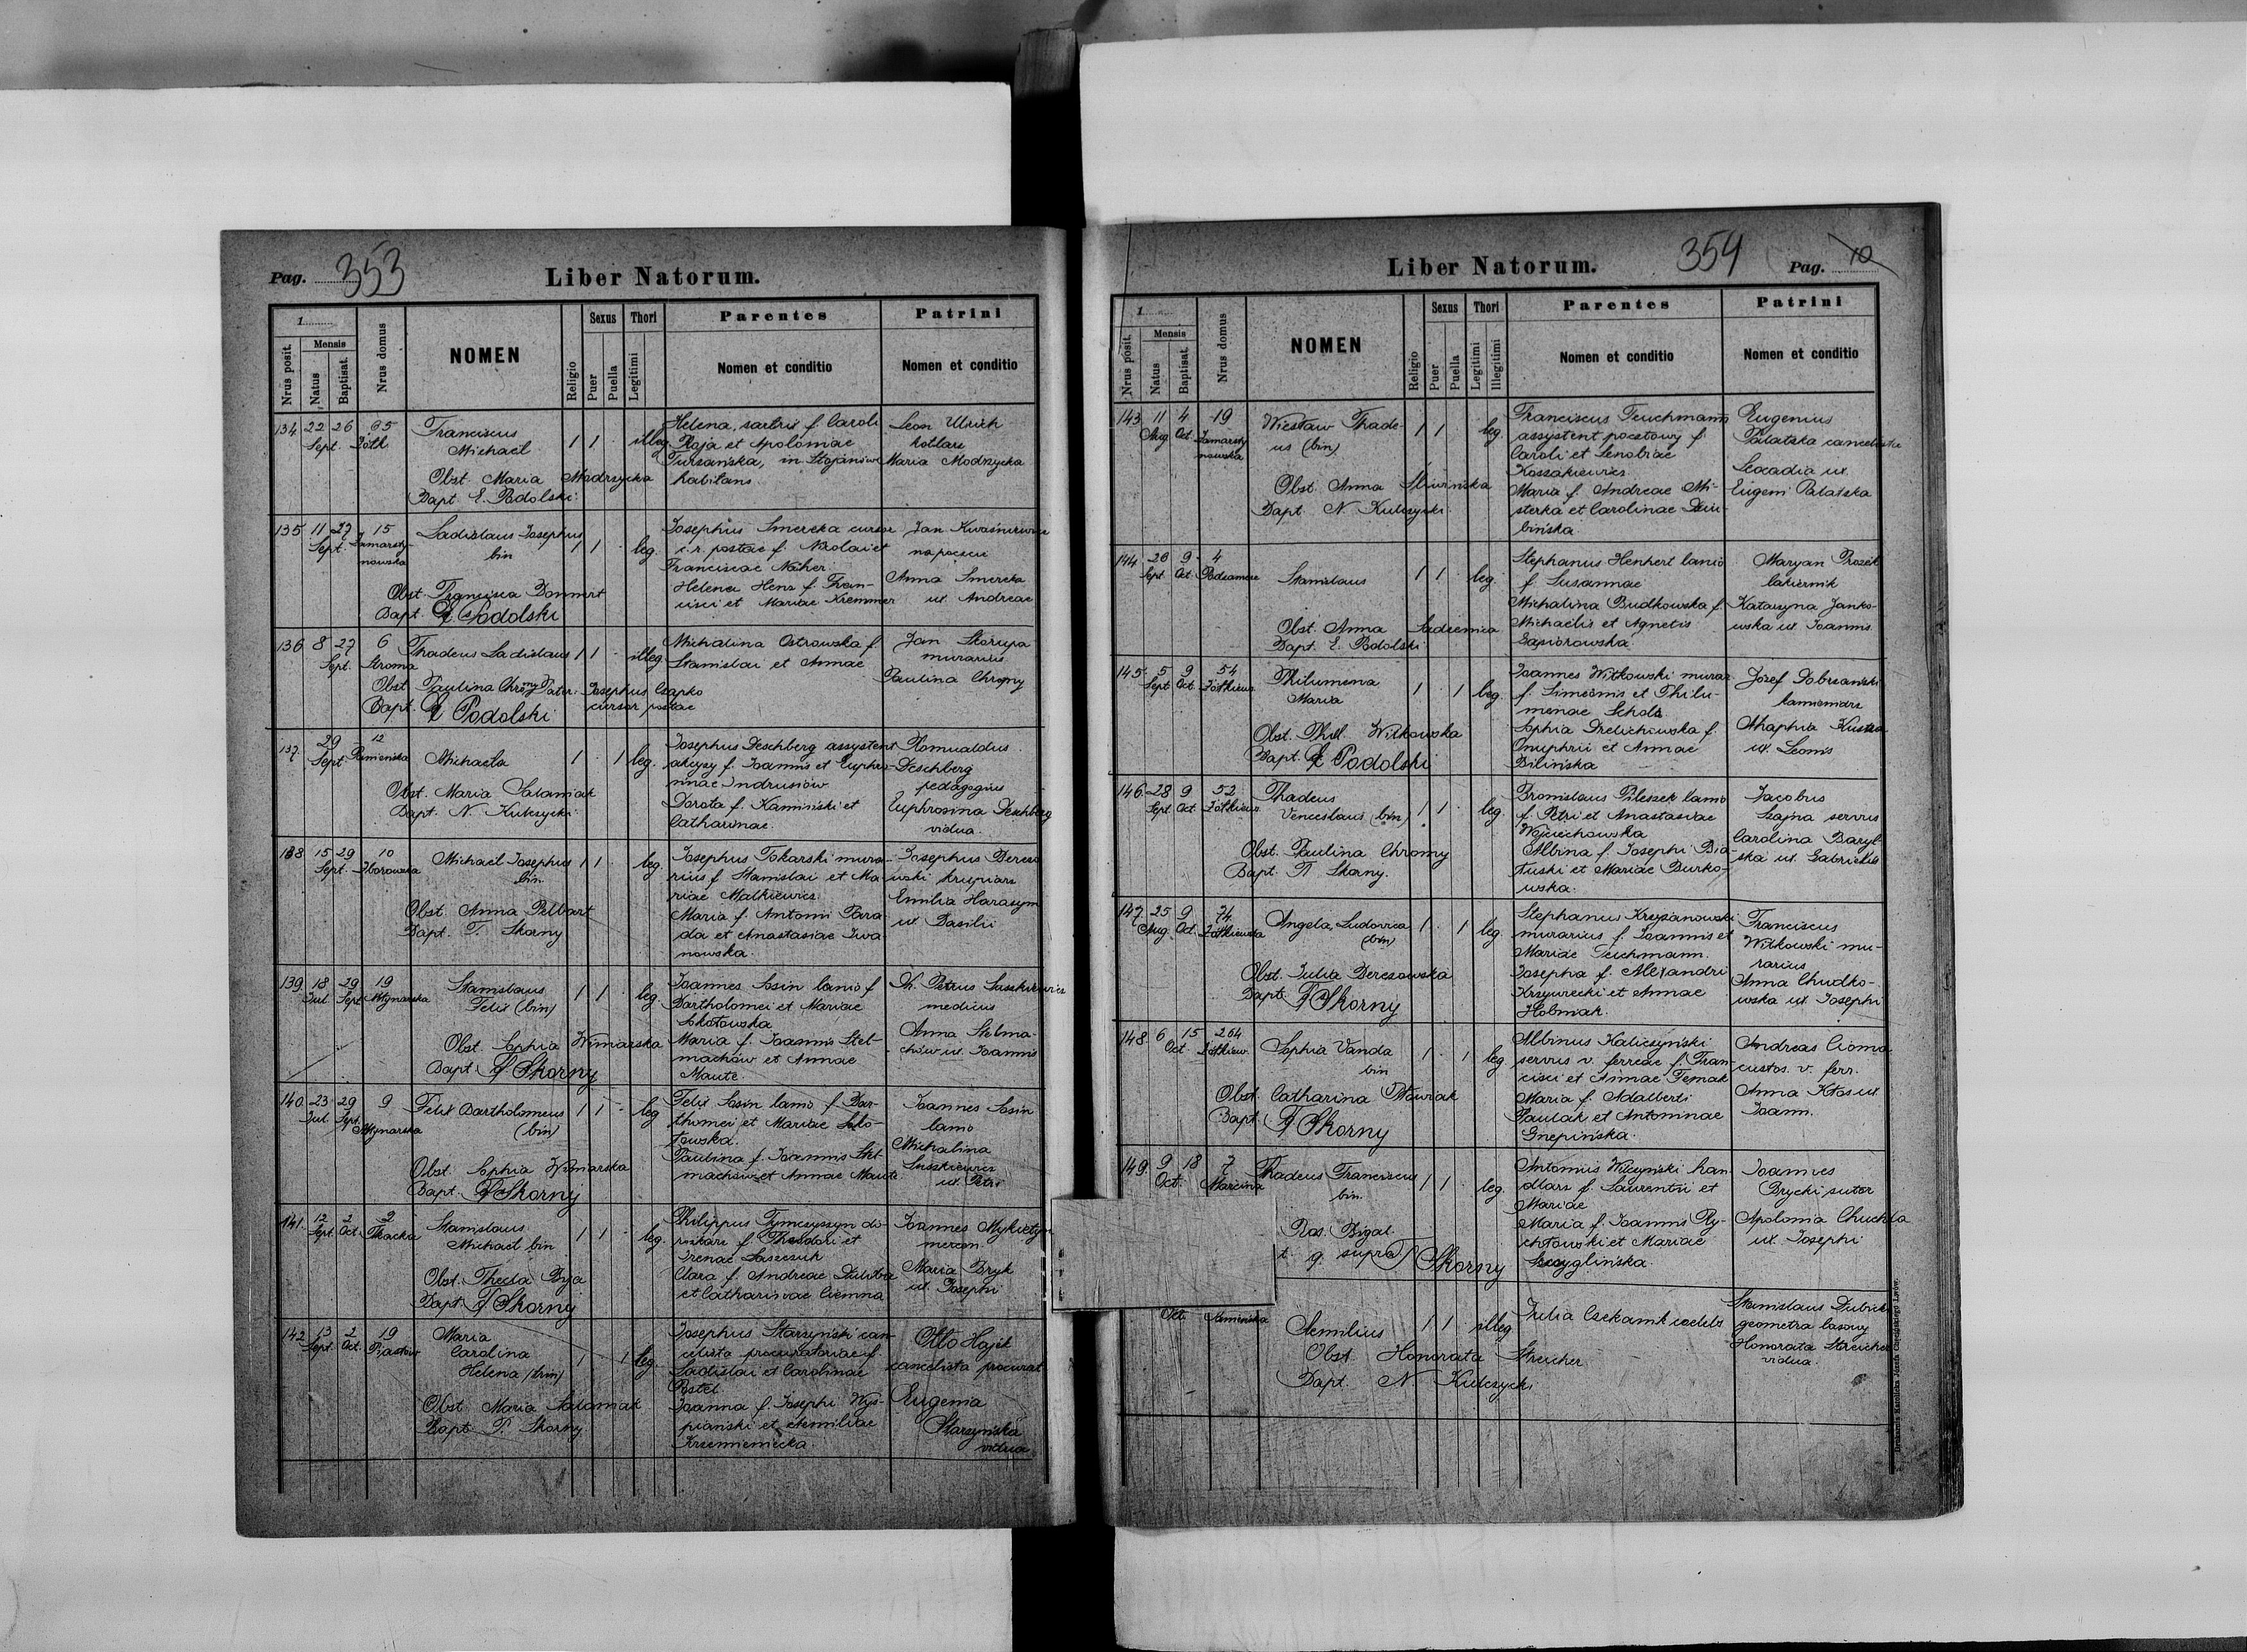 Pag. 353
Liber Natorum.
1
Nrus posit.
Mensis
Natus
Baptisat.
Nrus domus
NOMEN
Religio
Sexus
Puer
Puella
Thori
Legitimi
Parentes
Nomen et conditio
Patrini
Nomen et conditio
134 22 26 65
Sept. Żółk
Franciscus
Michael
1 1 illeg.
Obst. Maria Modrzycka
Bapt. E. Podolski
Helena, f. Caroli
Płaja et Apoloniae
in Stojanów
habitans
Leon Ulrich
kotlarz
Maria Modrzycka
135 11 27 15
Sept. Zamarsty-
nowska
Ladislaus Josephus
bin
1 1 leg.
Obst. Francisca
Bapt. E Podolski
Josephus Smereka cursor
c. r. postae f. Nicolai et
Franciscae Naher
Helena Henz f. Fran-
cisci et Mariae Kremmer
Jan
na poczcie
Anna Smereka
ux. Andreae
136 8 27 6
Sept. Stroma
Thadeus Ladislaus 1 1 illeg.
Obst. Paulina Chromy Pater: Josephus Czapko
cursor postae
Bapt. E Podolski
Michalina Ostrowska f.
Stanislai et Annae
Jan Skorupa
murarius
Paulina Chromy
137. 29 12
Sept.
Michaela
1 1 leg.
Obst. Maria Salamak
Bapt. N. Kulczycki
Josephus Deschberg assystent
akcyzy f. Joannis et Euphro-
sinae Andrusiów
Dorota f. Kamiński et
Catharinae
Romualdus
Deschberg
pedagogus
Euphrosina Deschberg
vidua.
138 15 29 10
Sept. Zborowska
Michael Josephus
bin
1 1 leg.
Obst. Anna Pelbart
Bapt. T. Skorny
Josephus Tokarski mura-
rius f. Stanislai et Ma-
riae Malkiewicz
Maria f. Antonii Para
da et Anastasiae Iwa
nowska.
Josephus Berezo
wski krupiarz
Emilia Harasym
ux. Basilii
139. 18 29 19
Jul. Sept. Młynarska
Stanislaus
Felix (bin)
1 1 leg.
Obst. Sophia Winiarska
Bapt. T Skorny
Joannes Sosin lanio f.
Bartholomei et Mariae
Sokołowska
Maria f. Joannis Stel-
machów et Annae
Maute.
Petrus Suszkiewicz
medicus
Anna Stelma-
chów ux. Joannis
140. 23 29 9
Jul. Sept. Młynarska
Felix Bartholomeus
(bin)
1 1 leg
Obst. Sophia Winiarska
Bapt. T Skorny
Felix Sosin lanio f. Bar-
tholomei et Mariae Soko-
łowska.
Paulina f. Joannis Stel
machów et Annae Maute
Joannes Sosin
lanio
Michalina
Suszkiewicz
ux. Petri
141. 12 2 2
Sept. Oct. Tkacka
Stanislaus
Michael bin
1 1 leg.
Obst. Thecla Byja
Bapt. T Skorny
Philippus Tymczyszyn do-
rożkarz f. Theodori et
Irenae Łaszczuk
Clara f. Andreae
et Catharinae Ciemna
Joannes Mykietyn
mercen.
Maria Bryk
ux. Josephi
142 13 2 19
Sept. Oct. Piastów
Maria
Carolina
Helena (trin)
1 1 leg.
Obst. Maria Salamak
Bapt. T. Skorny.
Josephus Starzyński can-
celista procuratoriae f.
Ladislai et Carolinae
Postel
Joanna f. Josephi Wys-
piański et Aemiliae
Krzemieniecka.
Otto Hajek
cancelista procurat
Eugenia
Starzyńska
vidua
Liber Natorum.
354
Pag. 10
1
Nrus posit.
Mensis
Natus
Baptisat.
Nrus domus
NOMEN
Religio
Sexus
Puer
Puella
Thori
Legitimi
Illegitimi
Parentes
Nomen et conditio
Patrini
Nomen et conditio
143 11 4 19
Aug. Oct. Zamarsty
nowska
Wiesław Thade-
us (bin)
1 1 leg.
Obst. Anna
Bapt. N Kulczycki
Franciscus Teuchmann
assystent pocztowy f.
Caroli et Zenobiae
Kossakiewicz
Maria f. Andreae Mi-
sterka et Carolinae Dziu-
bińska.
Eugenius
Palatska cancelista
Leocadia ux.
Eugenii Palatska
144 26 9 4
Sept. Oct. Podzamcze
Stanislaus
1 1 leg.
Obst. Anna Sadzenica
Bapt. E. Podolski
Stephanus Henhert lanio
f. Susannae
Michalina Budkowska f.
Michaelis et Agnetis
Gąsiorowska
Maryan Prozek
lakiernik
Katarzyna Janko-
wska ux. Joannis.
145. 5 9 54
Sept. Oct. Żółkiew.
Philumena
Maria
1 1 leg.
Obst. Phil. Witkowska
Bapt. E Podolski
Joannes Witkowski murar.
f. Simeonis et Philu-
menae Schols
Sophia Drelichowska f.
Onuphrii et Annae
Bilińska
Józef Dobrzański
kamieniarz
Ahaphia
ux. Leonis
146. 28 9 52
Sept. Oct. Żółkiew.
Thadeus
Venceslaus (bin)
1 1 leg.
Obst. Paulina Chromy
Bapt. T Skorny.
Bronislaus Pileszek lanio
f. Petri et Anastasiae
Wojciechowska
Albina f. Josephi Bia
łuski et Mariae Burko-
wska.
Jacobus
Szajna servus
Carolina Baryl-
ska ux. Gabrielis
147. 25 9 74
Aug. Oct. Żółkiewska
Angela Ludovica
(bin)
1 1 leg.
Obst. Julia Berezowska
Bapt. T Skorny
Stephanus Krzyżanowski
murarius f. Joannis et
Mariae Teichmann.
Josepha f. Alexandri
Krzywiecki et Annae
Hobniak.
Franciscus
Witkowski mu-
rarius
Anna Chudko-
wska ux. Josephi
148. 6 15 264
Oct. Żółkiew.
Sophia Vanda
bin
1 1 leg
Obst. Catharina Nowak
Bapt. T Skorny
Albinus Kaliczyński
servus v. ferreae f. Fran-
cisci et Annae Ternak
Maria f. Adalberti
Paulak et Antoninae
Gnepińska.
Andreas Cioma
custos. v. ferr.
Anna Kłos ux.
Joann.
149. 9 18 7
Oct. Marcina
Thadeus Franciscus
bin.
1 1 leg.
Ros. Bigal
t q. supra T Skorny
Antonius Wilczyński han
dlarz f. Laurentii et
Mariae
Maria f. Joannis Ry-
chłowski et Mariae
Szczyglińska.
Joannes
Brycki sutor
Apolonia Chuchla
ux. Josephi
Oct.
Aemilius
1 1 illeg
Obst. Honorata Streicher
Bapt. N. Kulczycki
Julia
Stanislaus Dubick
geometra lasowy
Honorata Streicher
vidua.